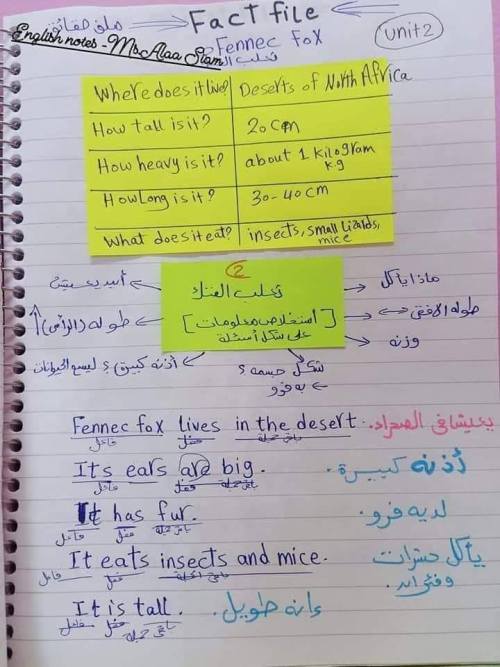 ملف حقائق → Fact file ←
English notes - Ms.Alaa Siam
Fennec fox
unit 2
Where does it live? Deserts of North Africa
How tall is it? 20 cm
How heavy is it? about 1 kilogram
kg
How long is it? 30-40 cm
What does it eat? insects, small lizards,
mice
2
ثعلب الفنك
[استخلاص معلومات]
على شكل أسئلة
أين يعيش
ماذا يأكل
طوله (الرأسي)
طوله الأفقي
وزنه
أذنه كبيرة؟ ليسمع الحيوانات
شكل جسمه؟
به فرو
Fennec fox lives in the desert. يعيش في الصحراء
فاعل فعل باقي جملة
Its ears are big. أذنه كبيرة.
فاعل فعل باقي جملة
It has fur. لديه فرو.
فاعل فعل باقي جملة
It eats insects and mice. يأكل حشرات
فاعل فعل باقي الجملة وفئران.
It is tall. إنه طويل.
فاعل فعل باقي جملة